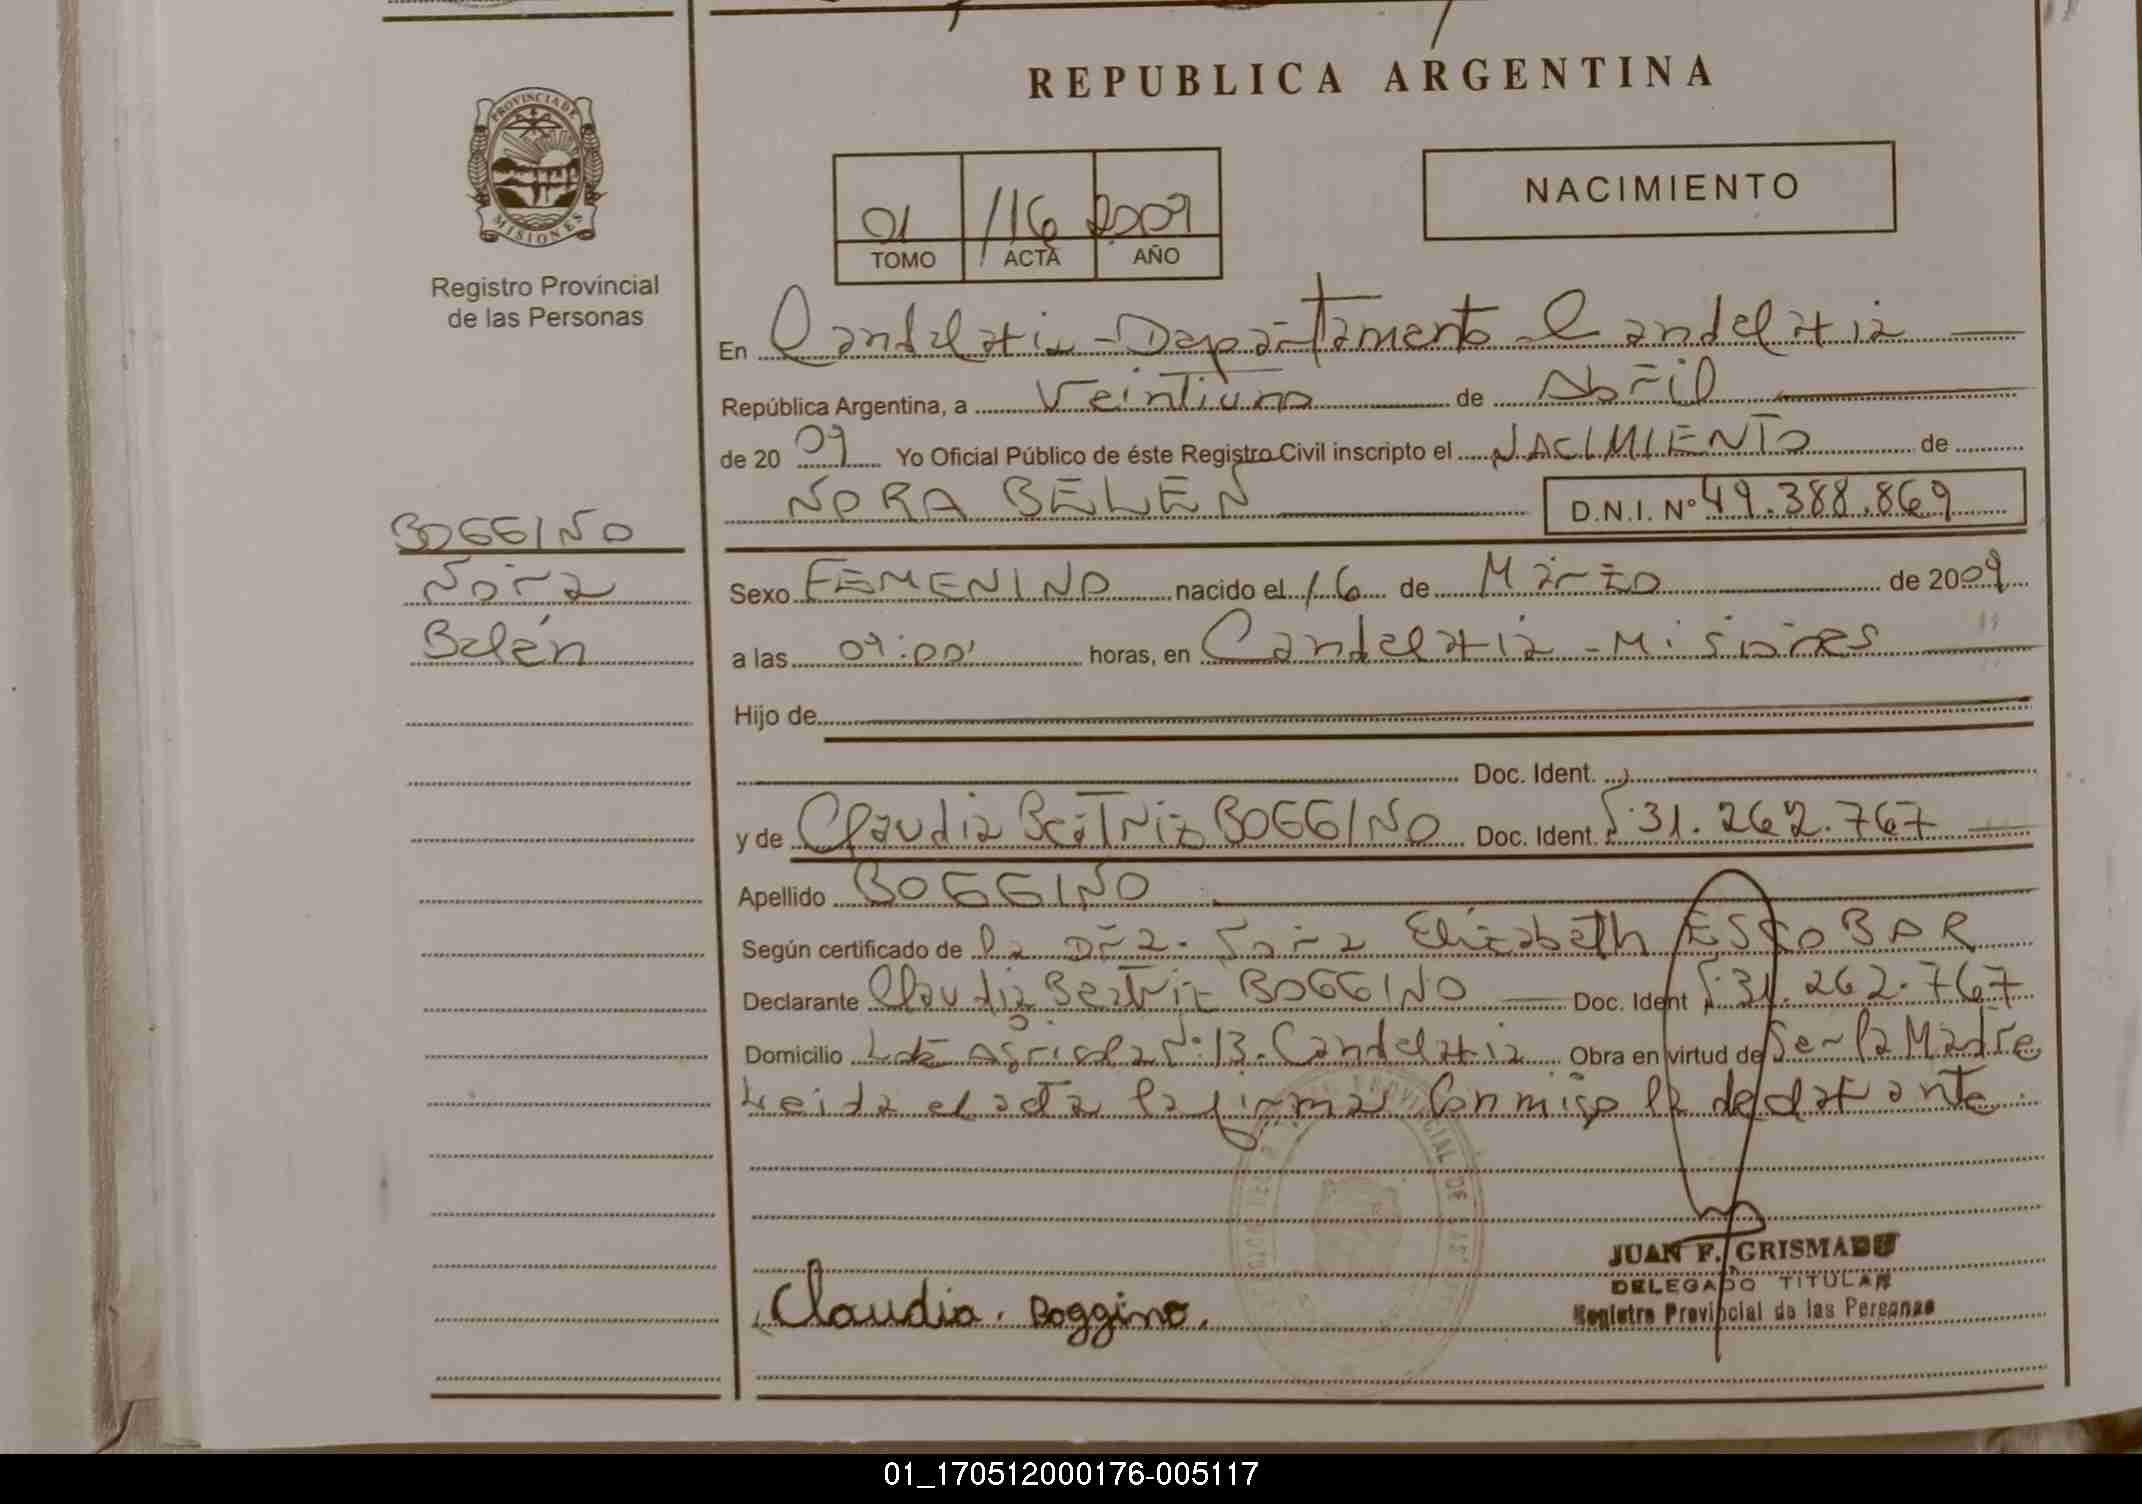 REPUBLICA ARGENTINA
PROVINCIA DE MISIONES
Registro Provincial
de las Personas
01 116 2009
TOMO ACTA AÑO
NACIMIENTO
En Candelaria - Departamento Candelaria
República Argentina, a Veintiuno de Abril
de 20 09 Yo Oficial Público de éste Registro Civil inscripto el NACIMIENTO de
NORA BELEN D.N.I. Nº 49.388.869
BOGGINO
Nora
Belén
Sexo FEMENINO nacido el 16 de Marzo de 2009
a las 09:00' horas, en Candelaria - Misiones
Hijo de
Doc. Ident.
y de Claudia Beatriz BOGGINO Doc. Ident. 31.262.767
Apellido BOGGINO
Según certificado de la Dra. Elizabeth ESCOBAR
Declarante Claudia Beatriz BOGGINO Doc. Ident 31.262.767
Domicilio Lote Agricola Nº 13. Candelaria Obra en virtud de Ser la Madre
Leida el acta la firma Conmigo la declarante
Claudia. Boggino.
JUAN F. GRISMADO
DELEGADO TITULAR
Registro Provincial de las Personas
01_170512000176-005117